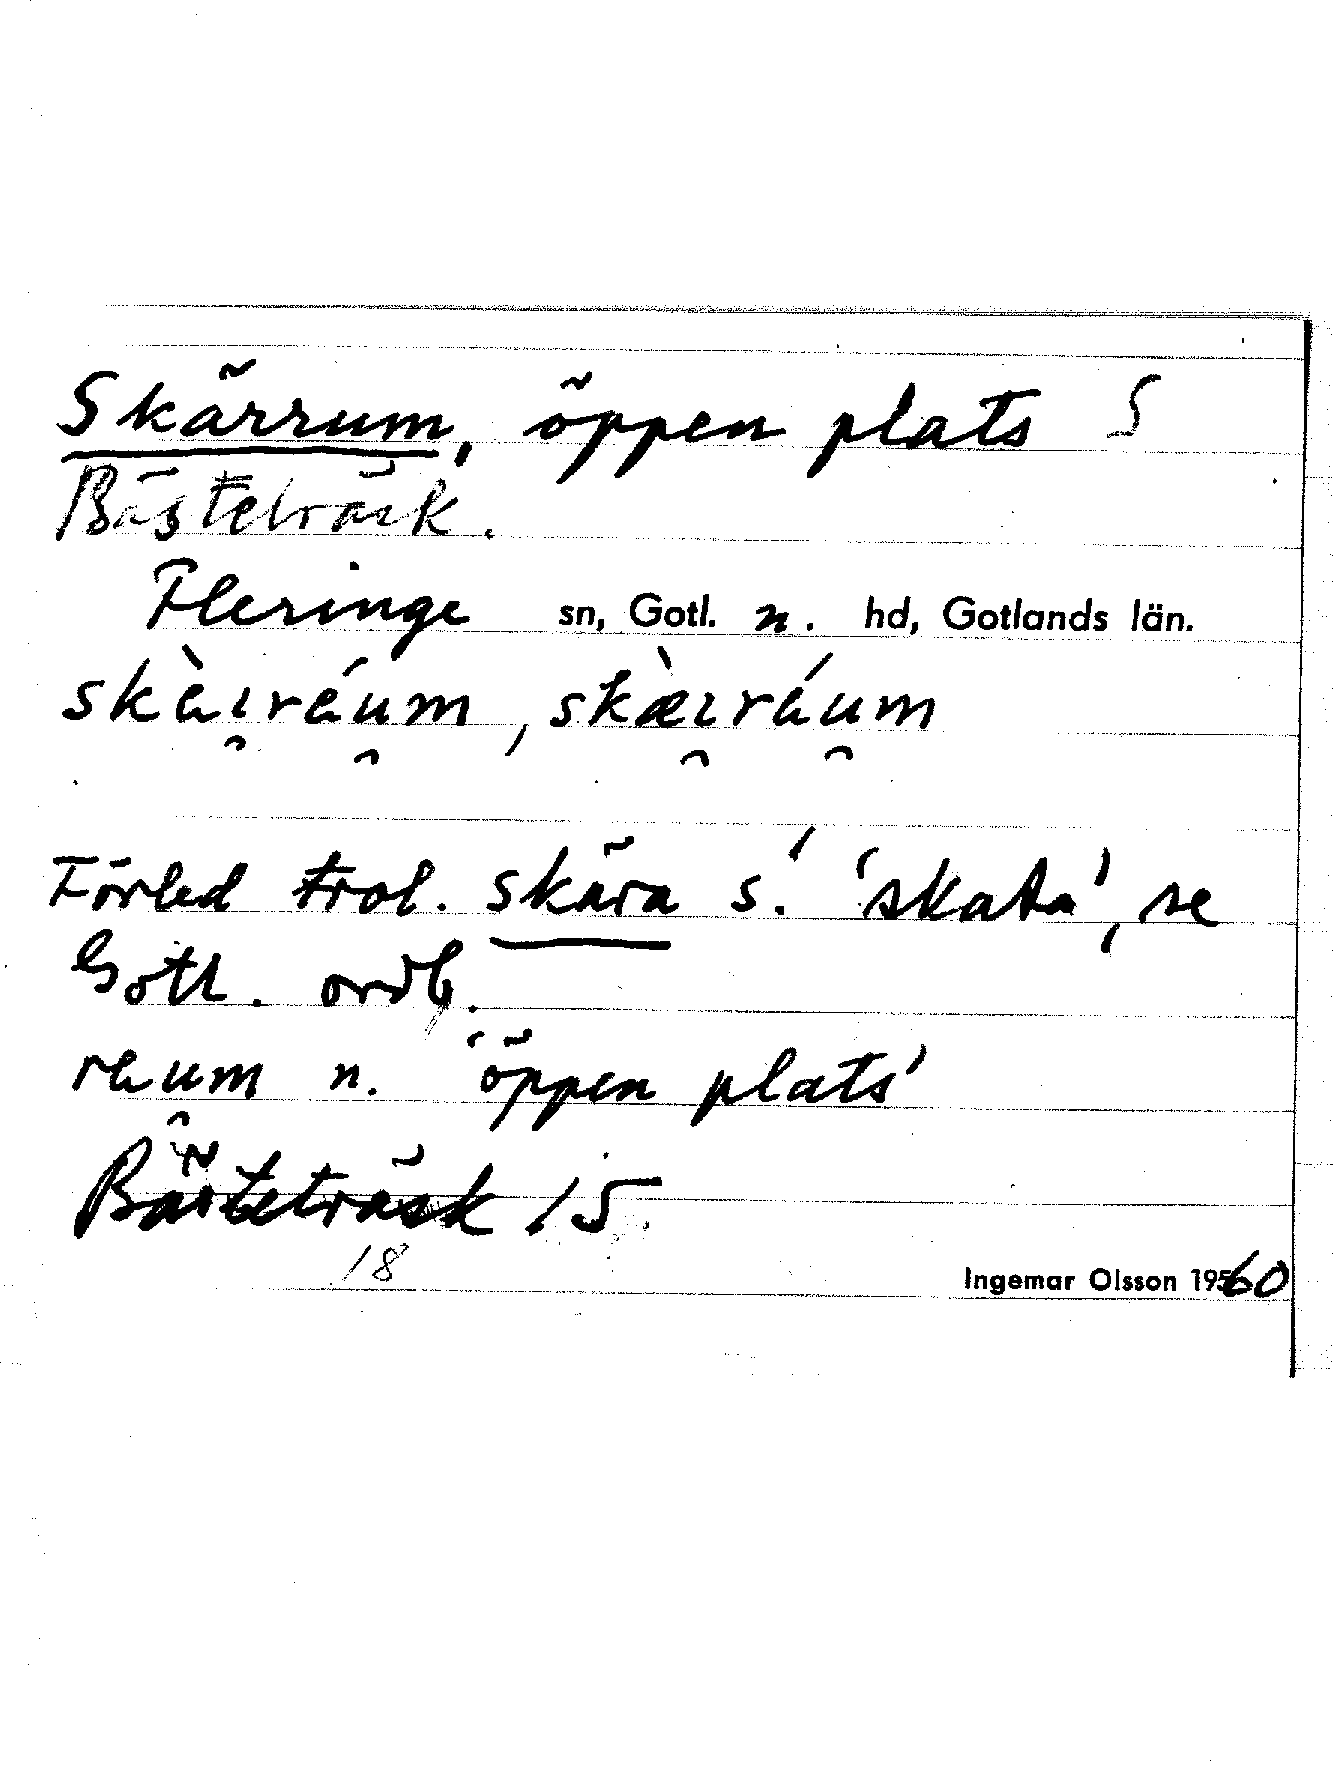 Skärrum, öppen plats S
Bästeträsk.
Fleringe sn, Gotl. n. hd, Gotlands län.
skàu̯ráum, skæ̀ɩráum
Förled trol. skära s. 'skata', se
Gotl. ordb.
raum n. 'öppen plats'
Bästeträsk 15
18
Ingemar Olsson 1960